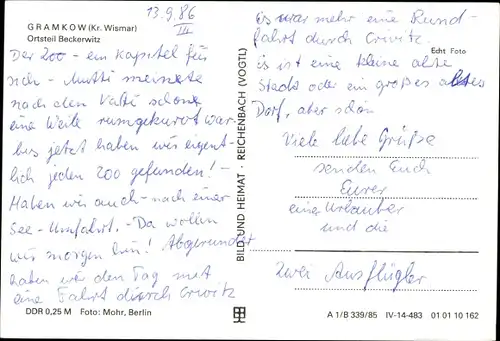 GRAMKOW (Kr. Wismar)
Ortsteil Beckerwitz
13.9.86
III
Der Zoo - ein Kapitel für
sich - Mutti meinete
nach dem Vati schon
eine Weile rumgekurvt war
bis jetzt haben wir eigent-
lich jeden Zoo gefunden! -
Haben wir auch - nach einer
See - Umfahrt. - Da wollen
wir morgen hin! Abgerundet
haben wir den Tag mit
eine Fahrt durch Criwitz
DDR 0,25 M Foto: Mohr, Berlin
BILD UND HEIMAT · REICHENBACH (VOGTL)
Es war mehr eine Rund-
fahrt durch Criwitz.
Echt Foto
Es ist eine kleine alte
Stadt oder ein großes altes
Dorf, aber schön
Viele liebe Grüße
senden Euch
Eurer
eine Urlauber
und die
zwei Ausflügler
A 1/B 339/85 IV-14-483 01 01 10 162